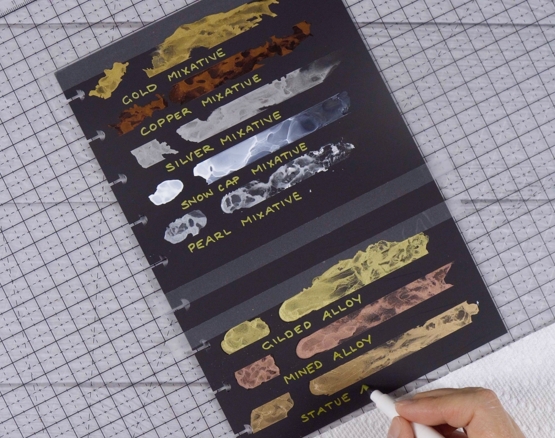 GOLD MIXATIVE
COPPER MIXATIVE
SILVER MIXATIVE
SNOW CAP MIXATIVE
PEARL MIXATIVE
GILDED ALLOY
MINED ALLOY
STATUE